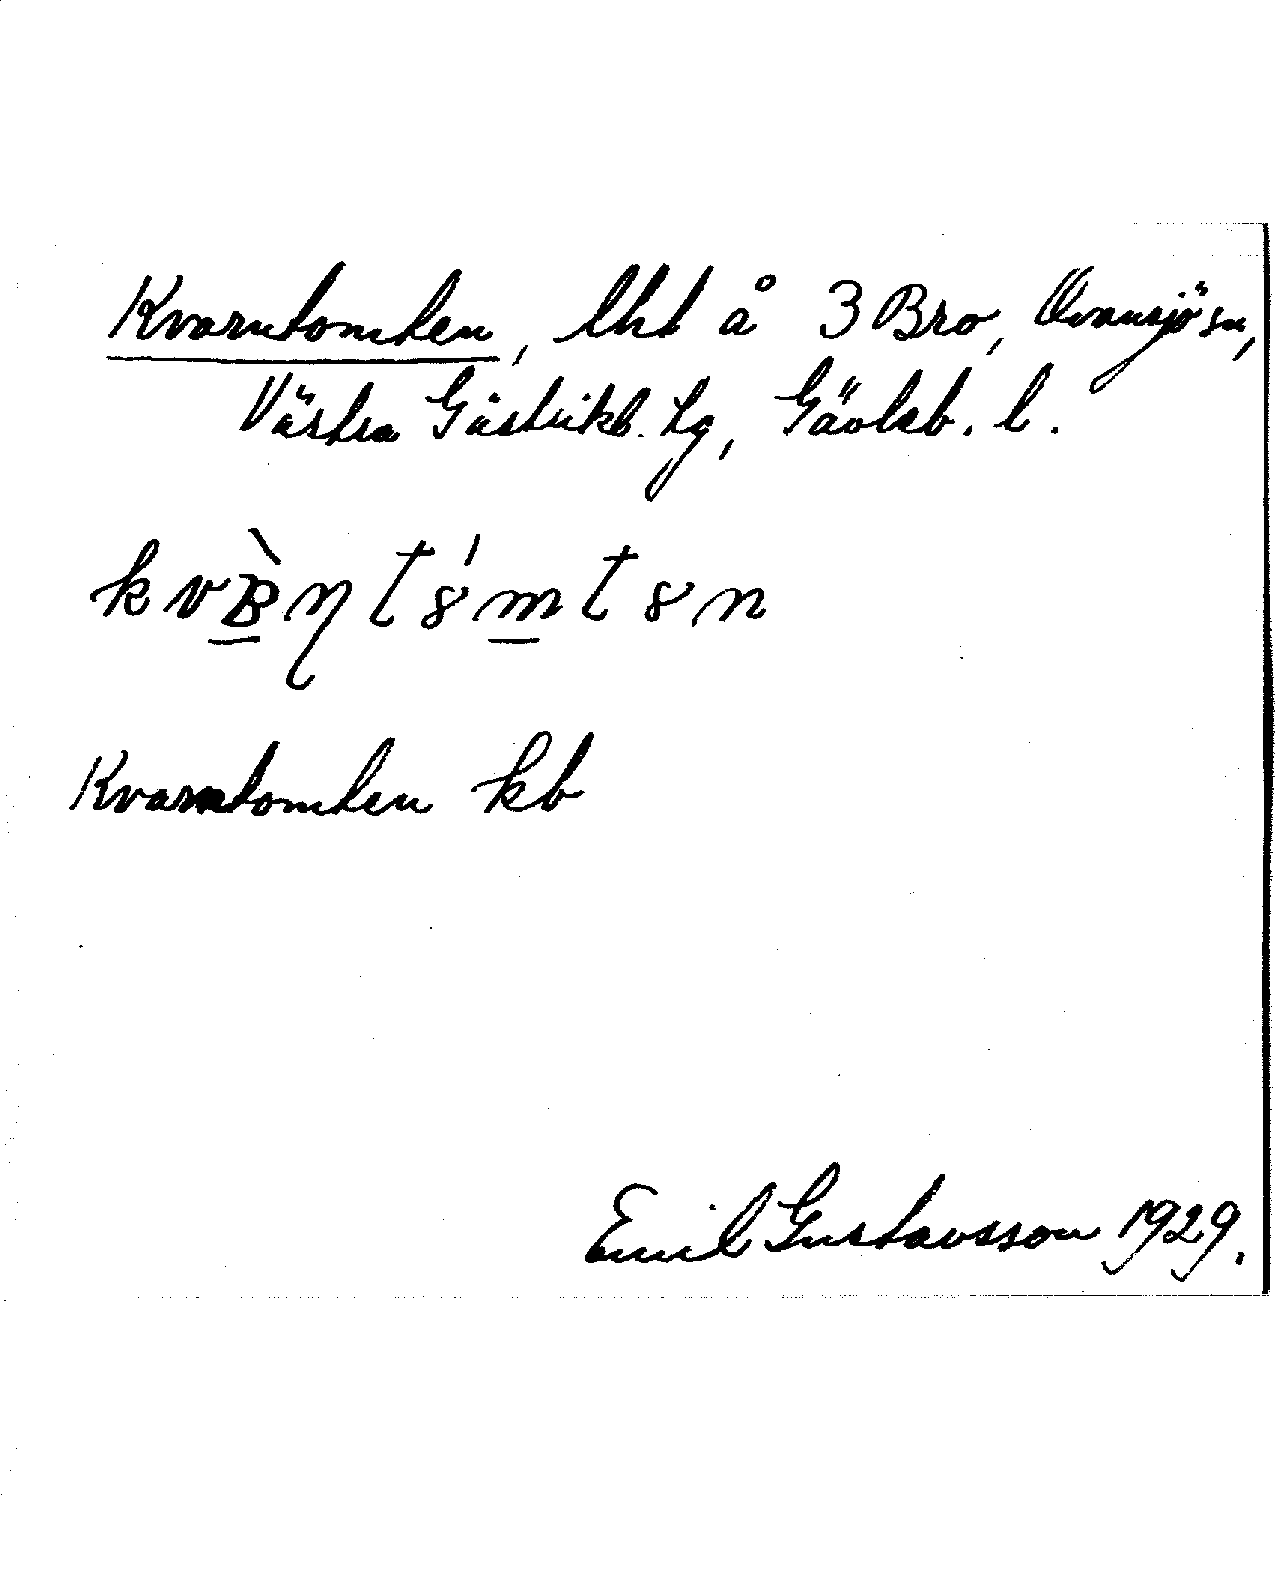 Kvarntomten, lht å 3 Bro, Ovansjö sn,
Västra Gästrikb. tg, Gävleb. l.
Kvarntomten kb
Emil Gustavsson 1929.